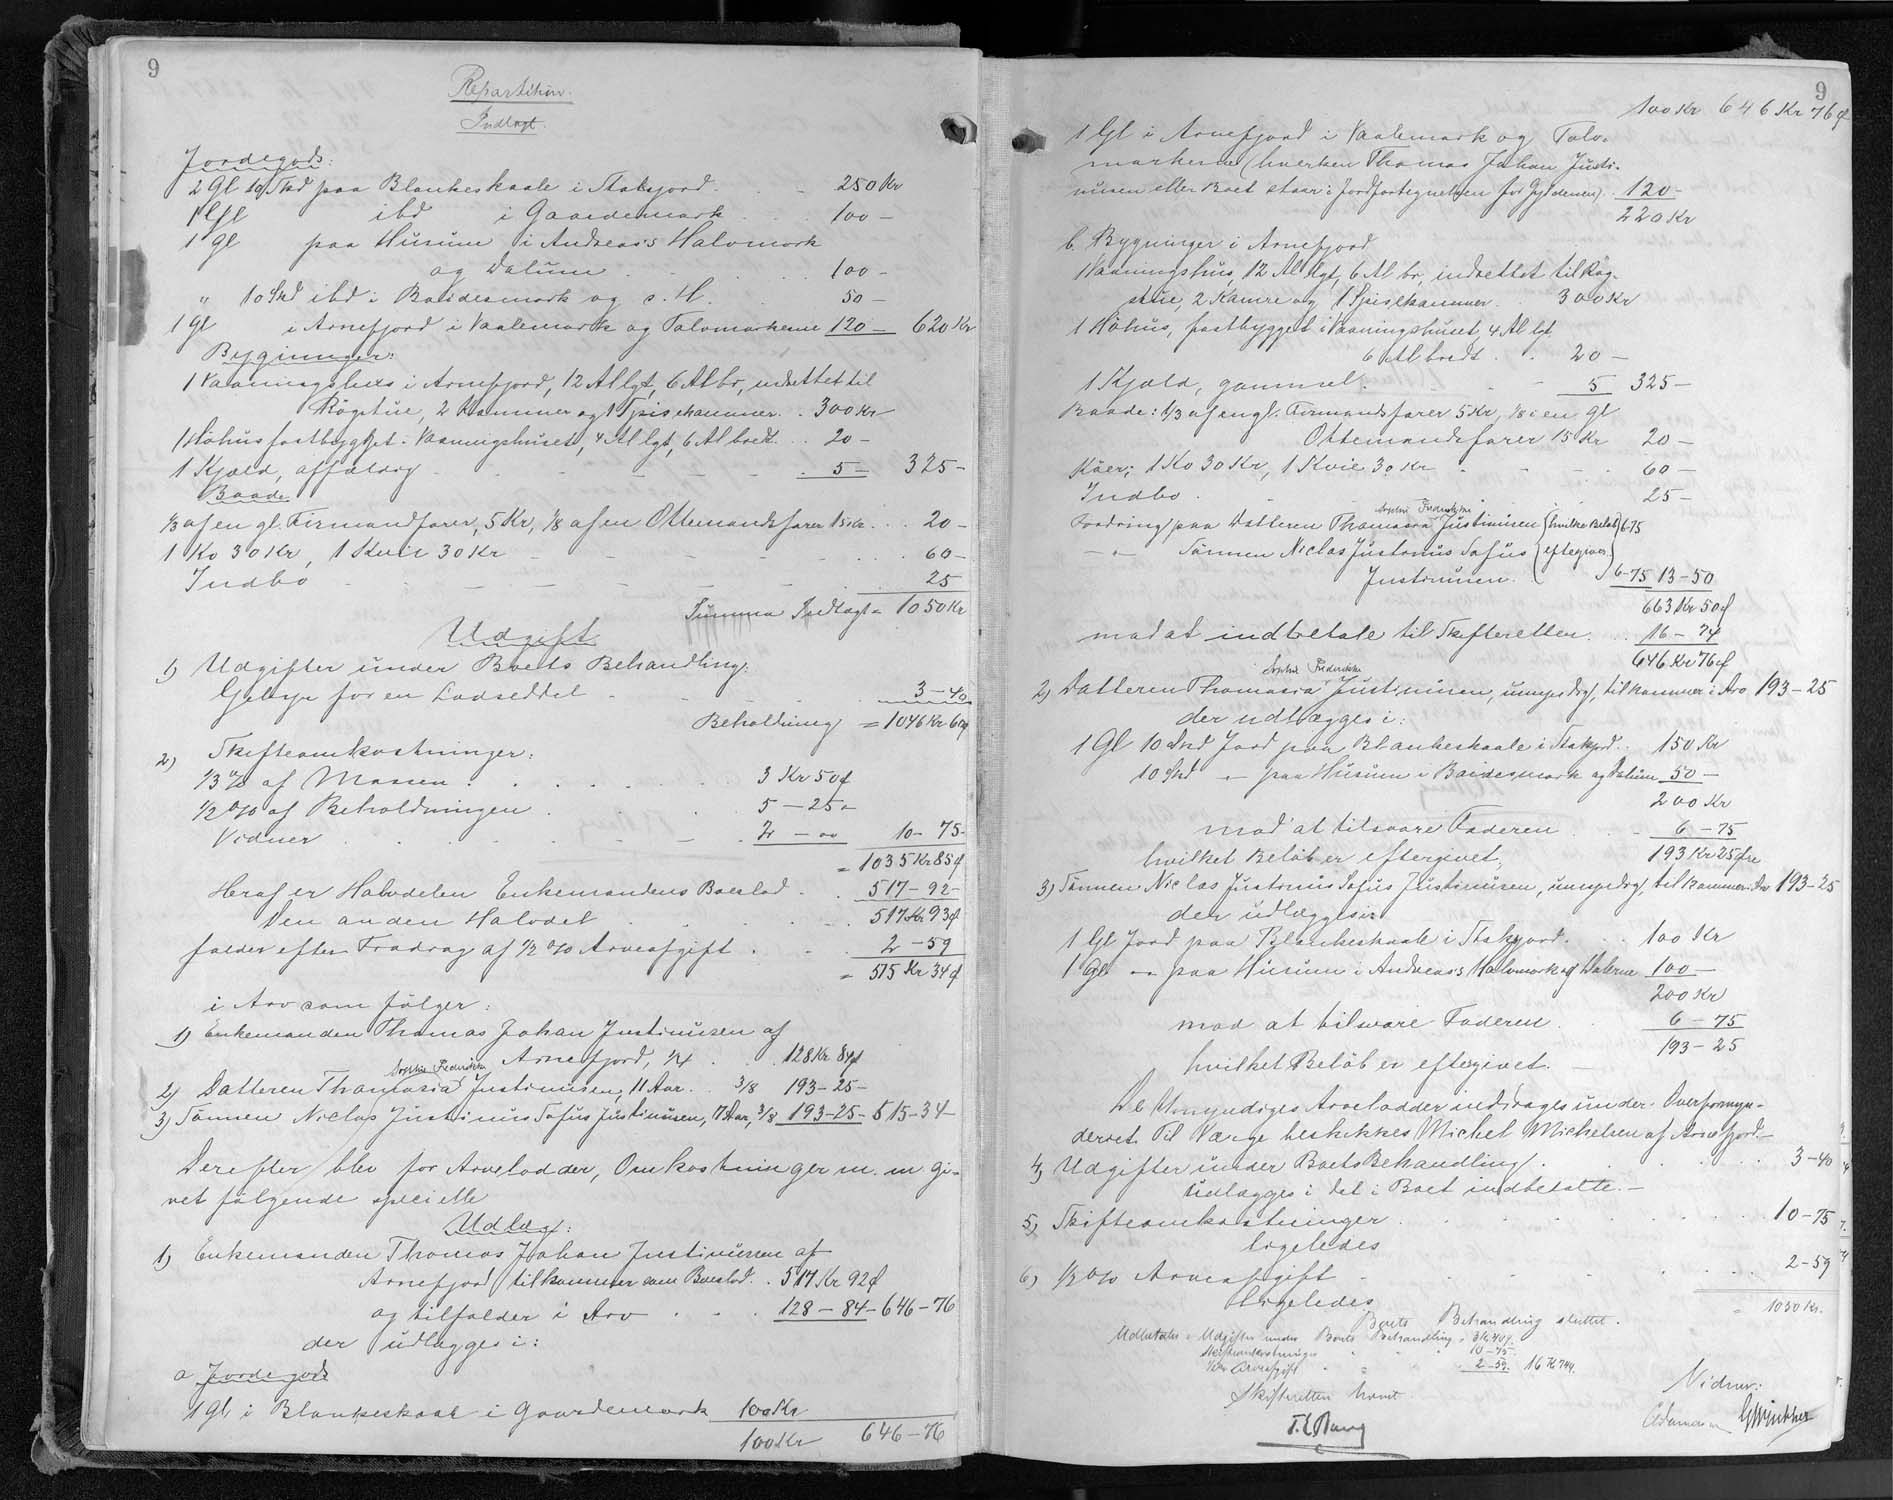 9
Repartition.
Indtægt.
Jordegods:
2 Gl 10 Skd paa Blankeskaale i Stakfjord. 250 Kr
1 Gl ibd i Gaardemark 100 —
1 Gl paa Húsum i Andreas's Halvmark
og Dalum 100 —
" 10 Skd ibd i Baidesmark og s. H. 50 —
1 Gl i Arnefjord i Vaalemark og Tolvmarkerne 120 — 620 Kr
Bygninger:
1 Vaaningshus i Arnefjord, 12 Al lgt, 6 Al br, indrettet til
Røgstue, 2 Kammer og 1 Spisekammer. 300 Kr
1 Höhus fastbygget i Vaaningshuset, 4 Al lgt, 6 Al bredt. 20 —
1 Kjæld, affældig 5 — 325 —
Baade
1/3 af en gl. Firmandsfarer, 5 Kr, 1/8 af en Ottemandsfarer 15 Kr. 20 —
1 Ko 30 Kr, 1 Kvie 30 Kr 60 —
Indbo 25
Summa Indtægt = 1050 Kr
Udgift
1) Udgifter under Boets Behandling:
Gebyr for en Lodseddel 3 — 40
Beholdning = 1046 Kr 60 ø
2) Skifteomkostninger:
1/3 % af Massen 3 Kr 50 ø
1/2 % af Beholdningen 5 — 25 —
Vidner 2 — 00 10 — 75 —
= 1035 Kr 85 ø
Heraf er Halvdelen Enkemandens Boeslod 517 — 92 —
Den anden Halvdel 517 Kr 93 ø
falder efter Fradrag af 1/2 % Arveafgift 2 — 59
= 515 Kr 34 ø
i Arv som følger:
1) Enkemanden Thomas Johan Justinusen af
Arnefjord, 1/4 128 Kr 84 ø
Sophie Frederikke
2) Datteren Thomasia Justinusen, 11 Aar. 3/8 193 — 25 —
3) Sønnen Niclas Justinus Sofus Justinusen, 7 Aar, 3/8 193 — 25 — 515 — 34 —
Derefter blev for Arvelodder, Omkostninger m. m. gi-
vet følgende specielle
Udlæg:
1) Enkemanden Thomas Johan Justinusen af
Arnefjord tilkommer som Boeslod. 517 Kr 92 ø
og tilfalder i Arv 128 — 84 — 646 — 76
der udlægges i:
a Jordegods
1 Gl i Blankeskaal i Gaardemark 100 Kr
100 Kr 646 — 76
9
100 Kr 646 Kr 76 ø
1 Gl i Arnefjord i Vaalemark og Tolv-
markerne (hverken Thomas Johan Justi-
nusen eller Boet staar i Jordfortegnelsen for Gyldenen) 120 —
220 Kr
b. Bygninger i Arnefjord
1 Vaaningshus, 12 Al lgt, 6 Al br, indrettet til Røg-
stue, 2 Kamre og 1 Spisekammer. 300 Kr
1 Höhus, fastbygget i Vaaningshuset, 4 Al lgt.
6 Al bredt 20 —
1 Kjæld, gammel. 5 325 —
Baade: 1/3 af en gl. Firmandsfarer 5 Kr, 1/8 i en gl
Ottemandsfarer 15 Kr 20 —
Köer: 1 Ko 30 Kr, 1 Kvie 30 Kr 60 —
Indbo. 25 —
Sophie Frederikke
Fordring paa Datteren Thomasia Justinusen (hvilke Beløb) 6-75
— " — Sønnen Niclas Justinus Sofus (eftergives)
Justinusen. 6-75 13 — 50
663 Kr 50 ø
mod at indbetale til Skifteretten 16 — 74
646 Kr 76 ø
Sophie Frederikke
2) Datteren Thomasia Justinusen, umyndig, tilkommer i Arv 193 — 25
der udlægges i:
1 Gl 10 Skd Jord paa Blankeskaale i Stakfjord. 150 Kr
10 Skd — " — paa Húsum i Baidesmark og Dalum 50 —
200 Kr
mod at tilsvare Faderen 6 — 75
hvilket Beløb er eftergivet. 193 Kr 25 Øre
3) Sønnen Niclas Justinus Sofus Justinusen, umyndig, tilkommer i Arv 193 — 25
der udlægges i:
1 Gl Jord paa Blankeskaale i Stakfjord. 100 Kr
1 Gl — " — paa Húsum i Andreas's Halvmark og Dalum 100 —
200 Kr
mod at tilsvare Faderen. 6 — 75
193 — 25
hvilket Beløb er eftergivet. —
De Umyndiges Arvelodder inddrages under Overformyn-
deriet. Til Værge beskikkes Michel Michelsen af Arnefjord. —
4) Udgifter under Boets Behandling 3 — 40
udlægges i det i Boet indbetalte. —
5) Skifteomkostninger 10 — 75
ligeledes
6) 1/2 % Arveafgift 2 — 59
ligeledes
= 1050 Kr.
Boets Behandling sluttet.
Udbetales: Udgifter under Boets Behandling = 3 Kr 40 ø
Skifteomkostninger " " 10 — 75
1/2 % Arveafgift " = 2 — 59. 16 Kr 74 ø.
Skifteretten hævet.
Vidner: